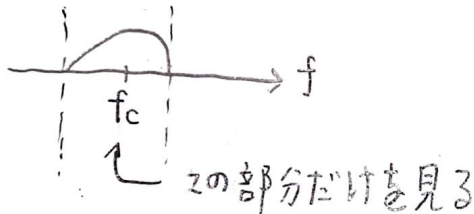 f
fc
この部分だけを見る